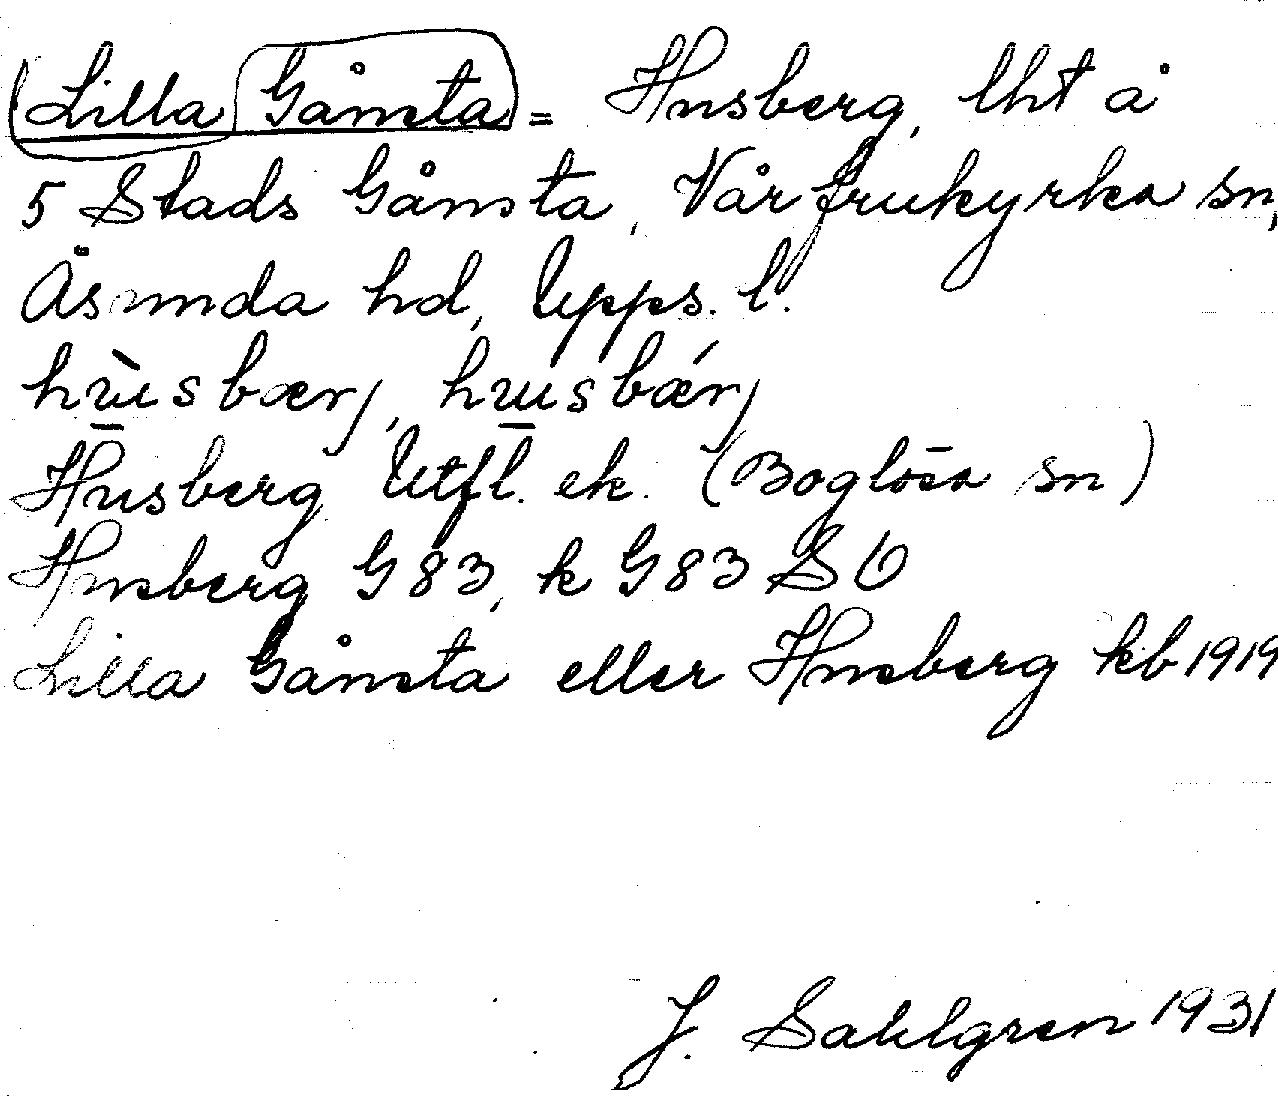 Lilla Gånsta = Husberg, lht å
5 Stads Gånsta, Vårfrukyrka sn,
Åsunda hd, Upps. l.
hùsbærj, husbǽrj
Husberg Utfl. ek. (Boglösa sn)
Husberg G 83, k G 83 S Ö
Lilla Gånsta eller Husberg kb 1919
J. Sahlgren 1931